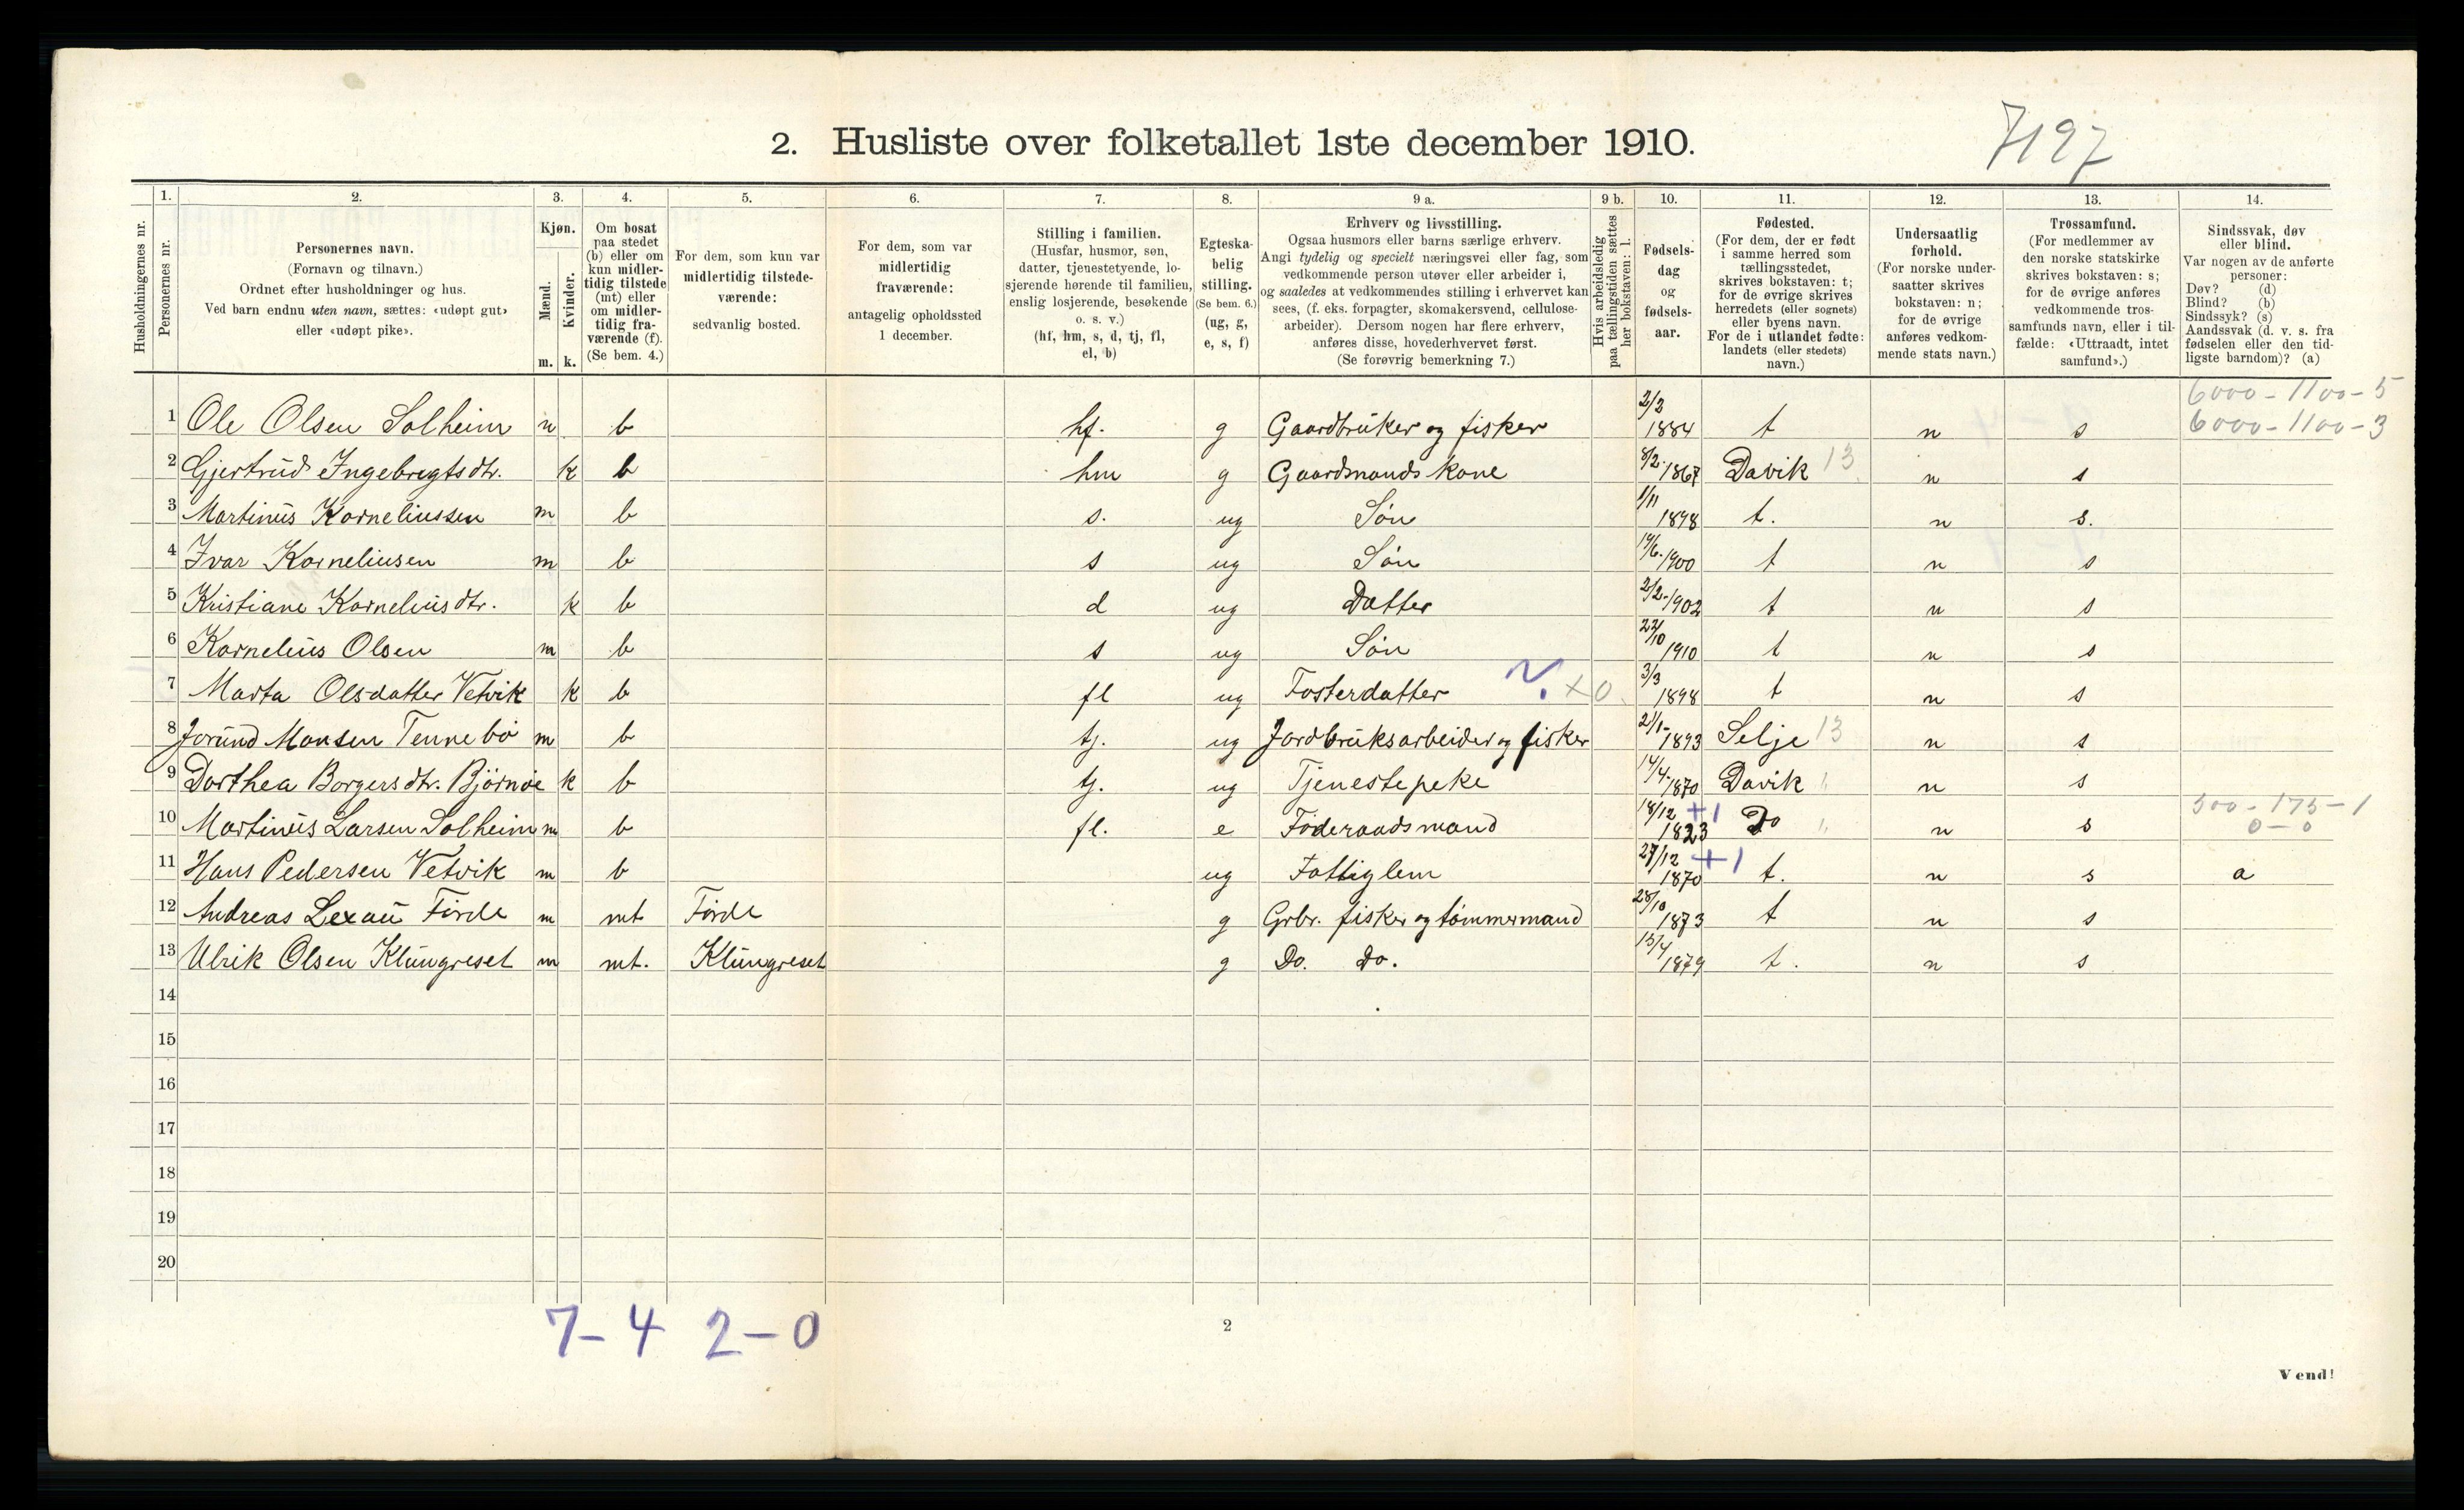 2. Husliste over folketallet 1ste december 1910.
7197
1. 2. 3. 4. 5. 6. 7. 8. 9 a. 9 b. 10. 11. 12. 13. 14.
Husholdningernes nr.
Personernes nr.
Personernes navn.
(Fornavn og tilnavn.)
Ordnet efter husholdninger og hus.
Ved barn endnu uten navn, sættes: «udøpt gut»
eller «udøpt pike».
Kjøn.
Mænd.
Kvinder.
m. k.
Om bosat
paa stedet
(b) eller om
kun midler-
tidig tilstede
(mt) eller
om midler-
tidig fra-
værende (f).
(Se bem. 4.)
For dem, som kun var
midlertidig tilstede-
værende:
sedvanlig bosted.
For dem, som var
midlertidig
fraværende:
antagelig opholdssted
1 december.
Stilling i familien.
(Husfar, husmor, søn,
datter, tjenestetyende, lo-
sjerende hørende til familien,
enslig losjerende, besøkende
o. s. v.)
(hf, hm, s, d, tj, fl,
el, b)
Egteska-
belig
stilling.
(Se bem. 6.)
(ug, g,
e, s, f)
Erhverv og livsstilling.
Ogsaa husmors eller barns særlige erhverv.
Angi tydelig og specielt næringsvei eller fag, som
vedkommende person utøver eller arbeider i,
og saaledes at vedkommendes stilling i erhvervet kan
sees, (f. eks. forpagter, skomakersvend, cellulose-
arbeider). Dersom nogen har flere erhverv,
anføres disse, hovederhvervet først.
(Se forøvrig bemerkning 7.)
Hvis arbeidsledig
paa tællingstiden sættes
her bokstaven: l.
Fødsels-
dag
og
fødsels-
aar.
Fødested.
(For dem, der er født
i samme herred som
tællingsstedet,
skrives bokstaven: t;
for de øvrige skrives
herredets (eller sognets)
eller byens navn.
For de i utlandet fødte:
landets (eller stedets)
navn.)
Undersaatlig
forhold.
(For norske under-
saatter skrives
bokstaven: n;
for de øvrige
anføres vedkom-
mende stats navn.)
Trossamfund.
(For medlemmer av
den norske statskirke
skrives bokstaven: s;
for de øvrige anføres
vedkommende tros-
samfunds navn, eller i til-
fælde: «Uttraadt, intet
samfund».)
Sindssvak, døv
eller blind.
Var nogen av de anførte
personer:
Døv? (d)
Blind? (b)
Sindssyk? (s)
Aandssvak (d. v. s. fra
fødselen eller den tid-
ligste barndom)? (a)
6000-1100-5
1 Ole Olsen Solheim m b hf. g Gaardbruker og fisker 2/2 1884 t n s 6000-1100-3
2 Gjertrud Ingebregtsdtr. k b hm g Gaardmands kone 8/2 1867 Davik 13 n s
3 Martinus Korneliussen m b s. ug Søn 1/11 1898 t. n s.
4 Ivar Korneliusen m b s ug Søn 14/6 1900 t n s
5 Kristiane Korneliusdtr. k b d ug Datter 2/2 1902 t n s
6 Kornelius Olsen m b s ug Søn 22/10 1910 t n s
7 Marta Olsdatter Vetvik k b fl ug Fosterdatter +0 3/3 1898 t n s
8 Jorund Monsen Tennebø m b tj. ug Jordbruksarbeider og fisker 21/1 1893 Selje 13 n s
9 Dorthea Borgersdtr. Bjørnøe k b tj. ug Tjenestepeke 14/4 1870 Davik " n s
10 Martinus Larsen Solheim m b fl. e Føderaadsmand 18/12 1823 +1 Do " n s 500-175-1
0-0
11 Hans Pedersen Vetvik m b ug Fattiglem 27/12 1870 +1 t. n s a
12 Andreas Lexau Førde m mt Førde g Grbr. fisker og tømmermand 28/10 1873 t n s
13 Ulrik Olsen Klungreset m mt. Klungreset g Do. Do. 13/4 1879 t. n s
14
15
16
17
18
19
20
7-4 2-0
2
Vend!